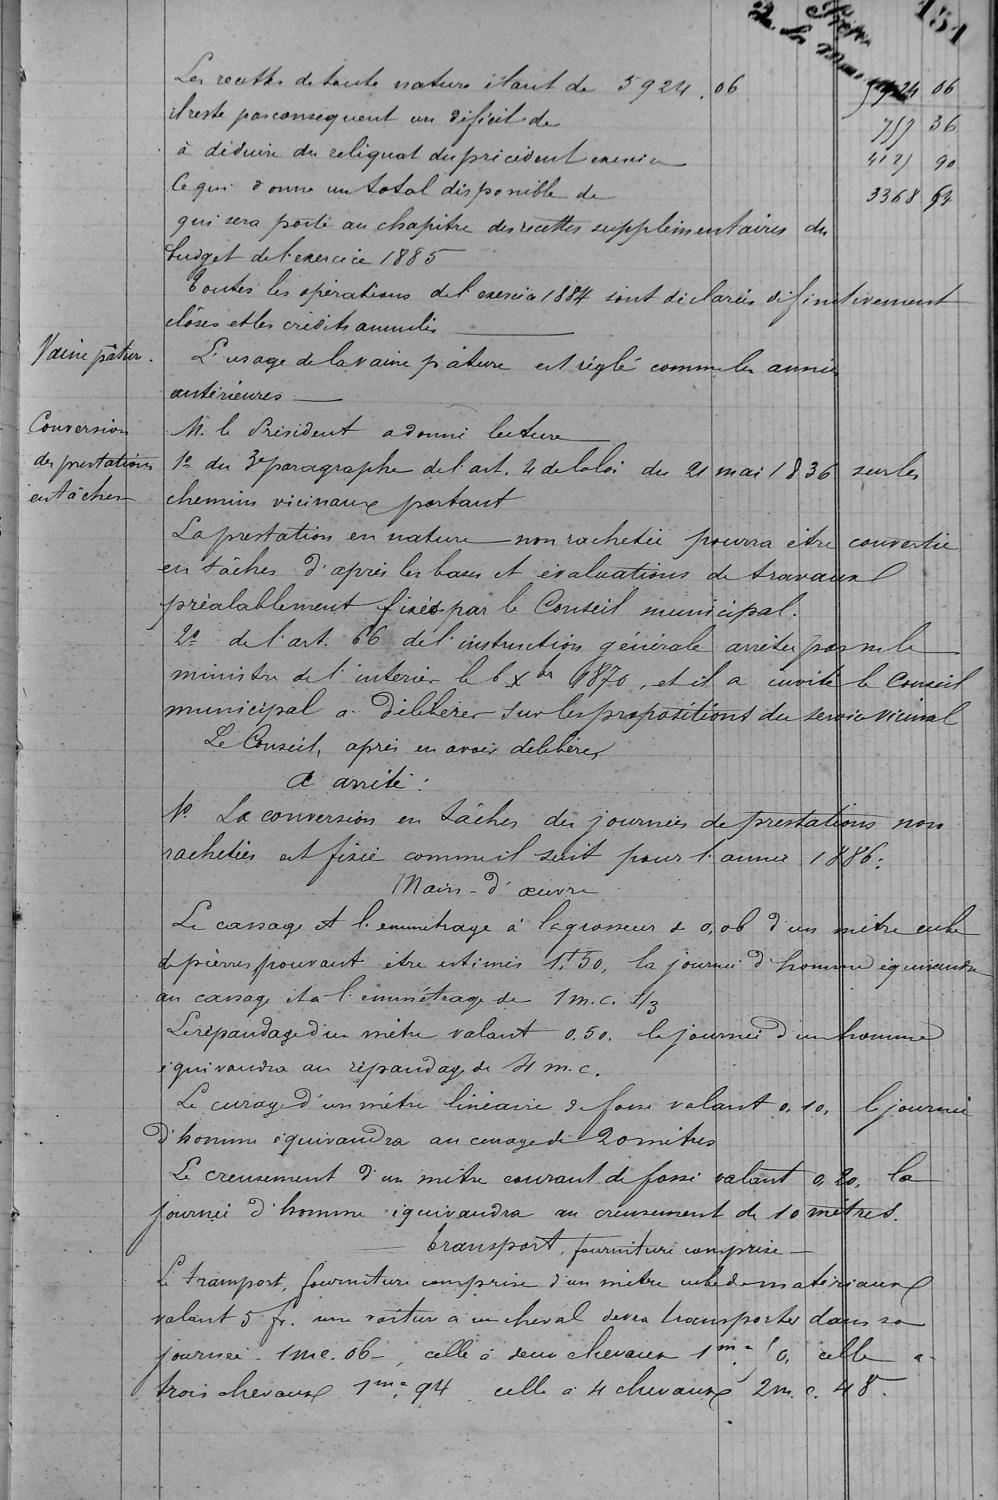 151
Les recettes de toute nature étant de 5924.06 5924 06
il reste par conséquent un déficit de 757 36
à déduire du reliquat du précédent exercice 90
Ce qui donne un total disponible de 3368
qui sera porté au chapitre des recettes supplémentaires du
budget de l'exercice 1885
Toutes les opérations de l'exercice 1884 sont déclarées définitivement
closes et les crédits annulés
Vaine pâture. L'usage de la vaine pâture est réglé comme les années
antérieures
Conversion M. le Président a donné lecture
des prestations 1o du 3e paragraphe de l'art. 4 de la loi du 21 mai 1836 sur les
en tâches chemins vicinaux portant
La prestation en nature non rachetée pourra être convertie
en tâches d'après les bases et évaluations de travaux
préalablement fixées par le Conseil municipal.
2o de l'art. 66 de l'instruction générale arrêtée par m le
ministre de l'intérieur le 6 Xbre 1870, et il a invité le Conseil
municipal à délibérer sur les propositions du service vicinal
Le Conseil, après en avoir délibérer
A arrêté :
1o. La conversion en tâches des journées de prestations non
rachetées est fixée comme il suit pour l'année 1886:
Main-d'œuvre
Le cassage et l'emmétrage à la grosseur de 0,06 d'un mètre cube
de pierres pouvant être estimés 1f50, la journée d'homme équivaudra
au cassage et à l'emmétrage de 1 m.c. 1/3
Le répandage d'un mètre valant 0.50. la journée d'un homme
équivaudra au répandage de 4 m.c.
Le curage d'un mètre linéaire de fossé valant 0,10, la journée
d'homme équivaudra au curage de 20 mètres
Le creusement d'un mètre courant de fossé valant 0,20, la
journée d'homme équivaudra au creusement de 10 mètres.
Transport, fourniture comprise
Le transport, fourniture comprise d'un mètre cube de matériaux
valant 5 fr. une voiture à un cheval devra transporter dans sa
journée 1mc. 06, celle à deux chevaux 1m.c. celle à
trois chevaux 1mc 94 celle à 4 chevaux 2m.c. 48.